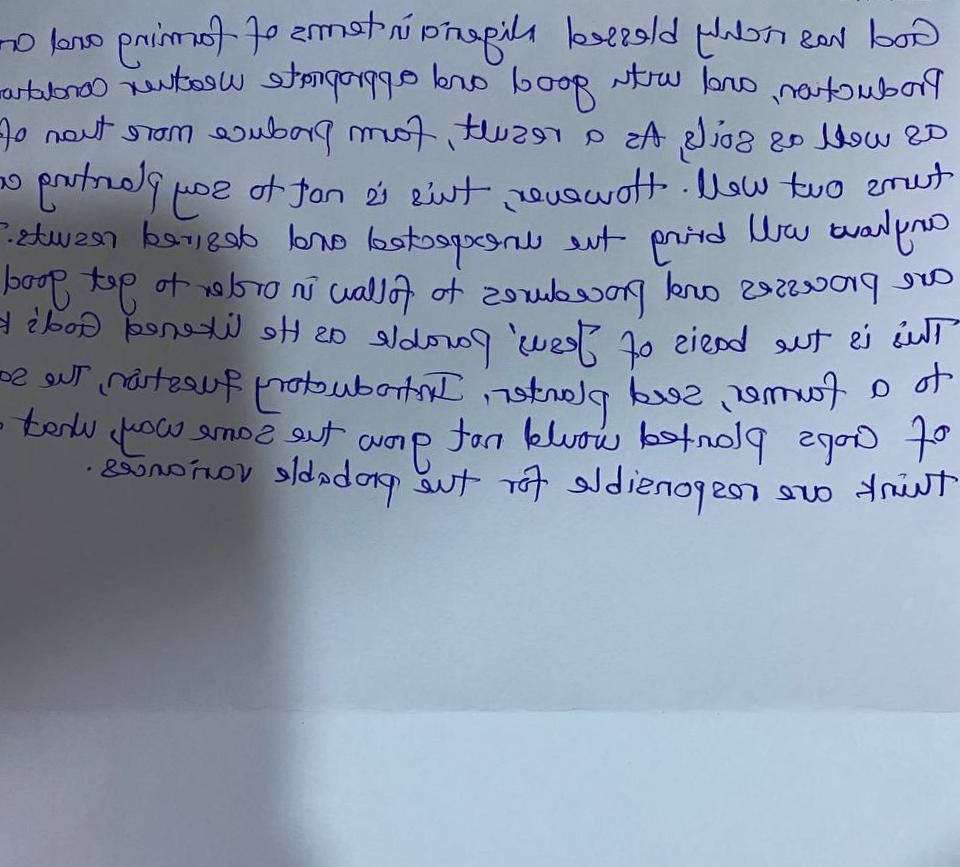 God has richly blessed Nigeria in terms of farming and
Production, and with good and appropriate weather
as well as soils, As a result, farm produce more than
turns out well. However, this is not to say planting
anyhow will bring the unexpected and desired results.
are processes and procedures to follow in order to get good
This is the basis of Jesus' parable as He likened God's
to a farmer, seed planter, Introductory question, the
of Crops planted would not grow the same way, what
think are responsible for the probable variances.